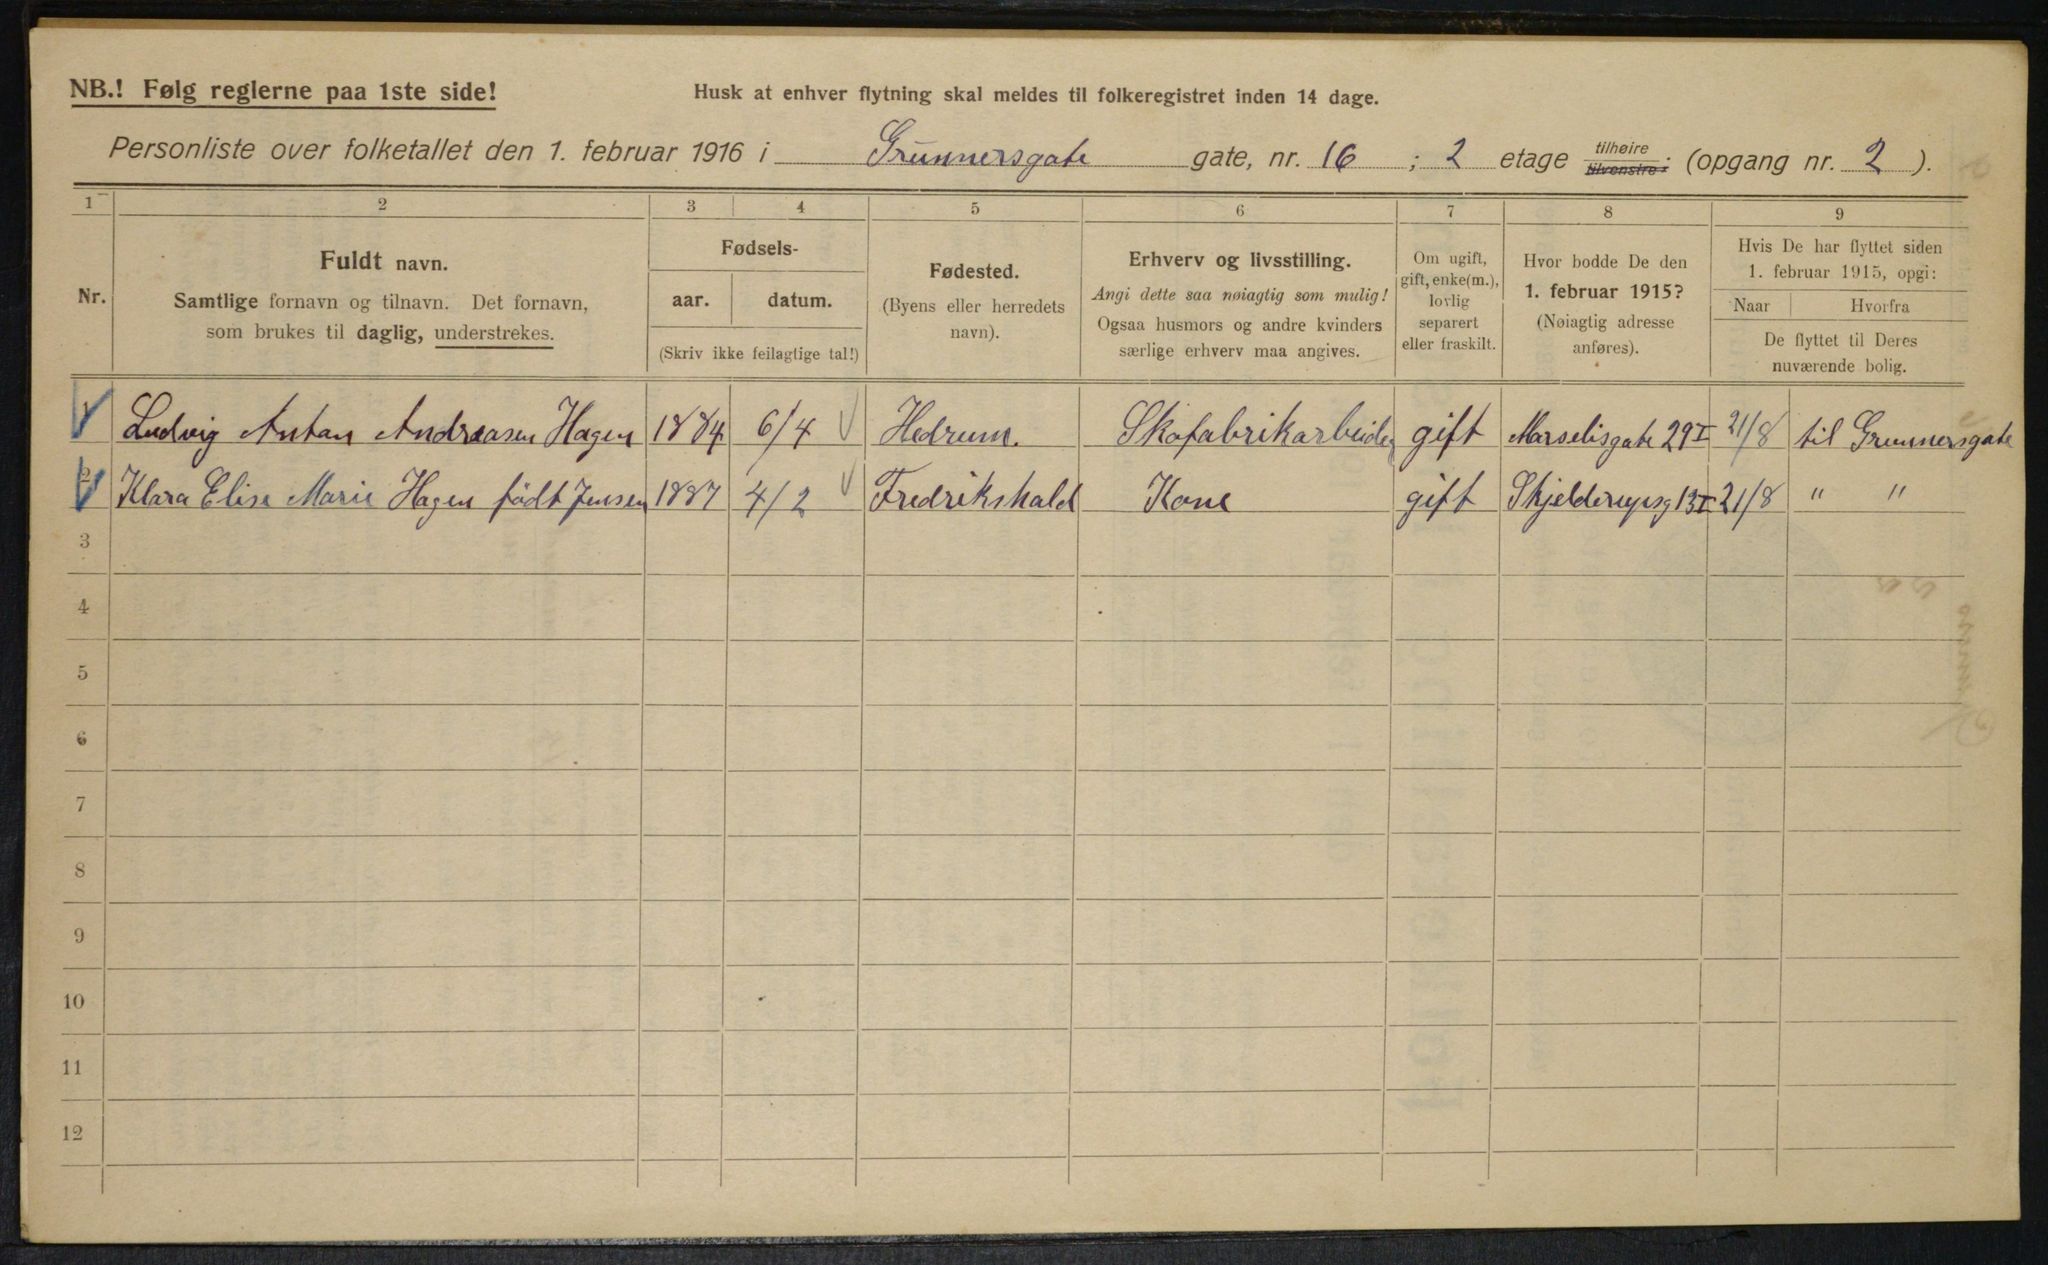 NB.! Følg reglerne paa 1ste side!
Husk at enhver flytning skal meldes til folkeregistret inden 14 dage.
Personliste over folketallet den 1. februar 1916 i Grünnersgate gate, nr. 16 ; 2 etage tilhøire tilvenstre; (opgang nr. 2 ).
1 2 3 4 5 6 7 8 9
Nr.
Fuldt navn.
Samtlige fornavn og tilnavn. Det fornavn,
som brukes til daglig, understrekes.
Fødsels-
aar. datum.
(Skriv ikke feilagtige tal!)
Fødested.
(Byens eller herredets
navn).
Erhverv og livsstilling.
Angi dette saa nøiagtig som mulig!
Ogsaa husmors og andre kvinders
særlige erhverv maa angives.
Om ugift,
gift, enke(m.),
lovlig
separert
eller fraskilt.
Hvor bodde De den
1. februar 1915?
(Nøiagtig adresse
anføres).
Hvis De har flyttet siden
1. februar 1915, opgi:
Naar Hvorfra
De flyttet til Deres
nuværende bolig.
1 Ludvig Anton Andreasen Hagen 1884 6/4 Hedrum. Skofabrikarbeider gift Marselisgate 29 I 21/8 til Grunnersgate
2 Klara Elise Marie Hagen født Jensen 1887 4/2 Fredrikshald Kone gift Skjelderupsg 13 I 21/8 " "
3
4
5
6
7
8
9
10
11
12